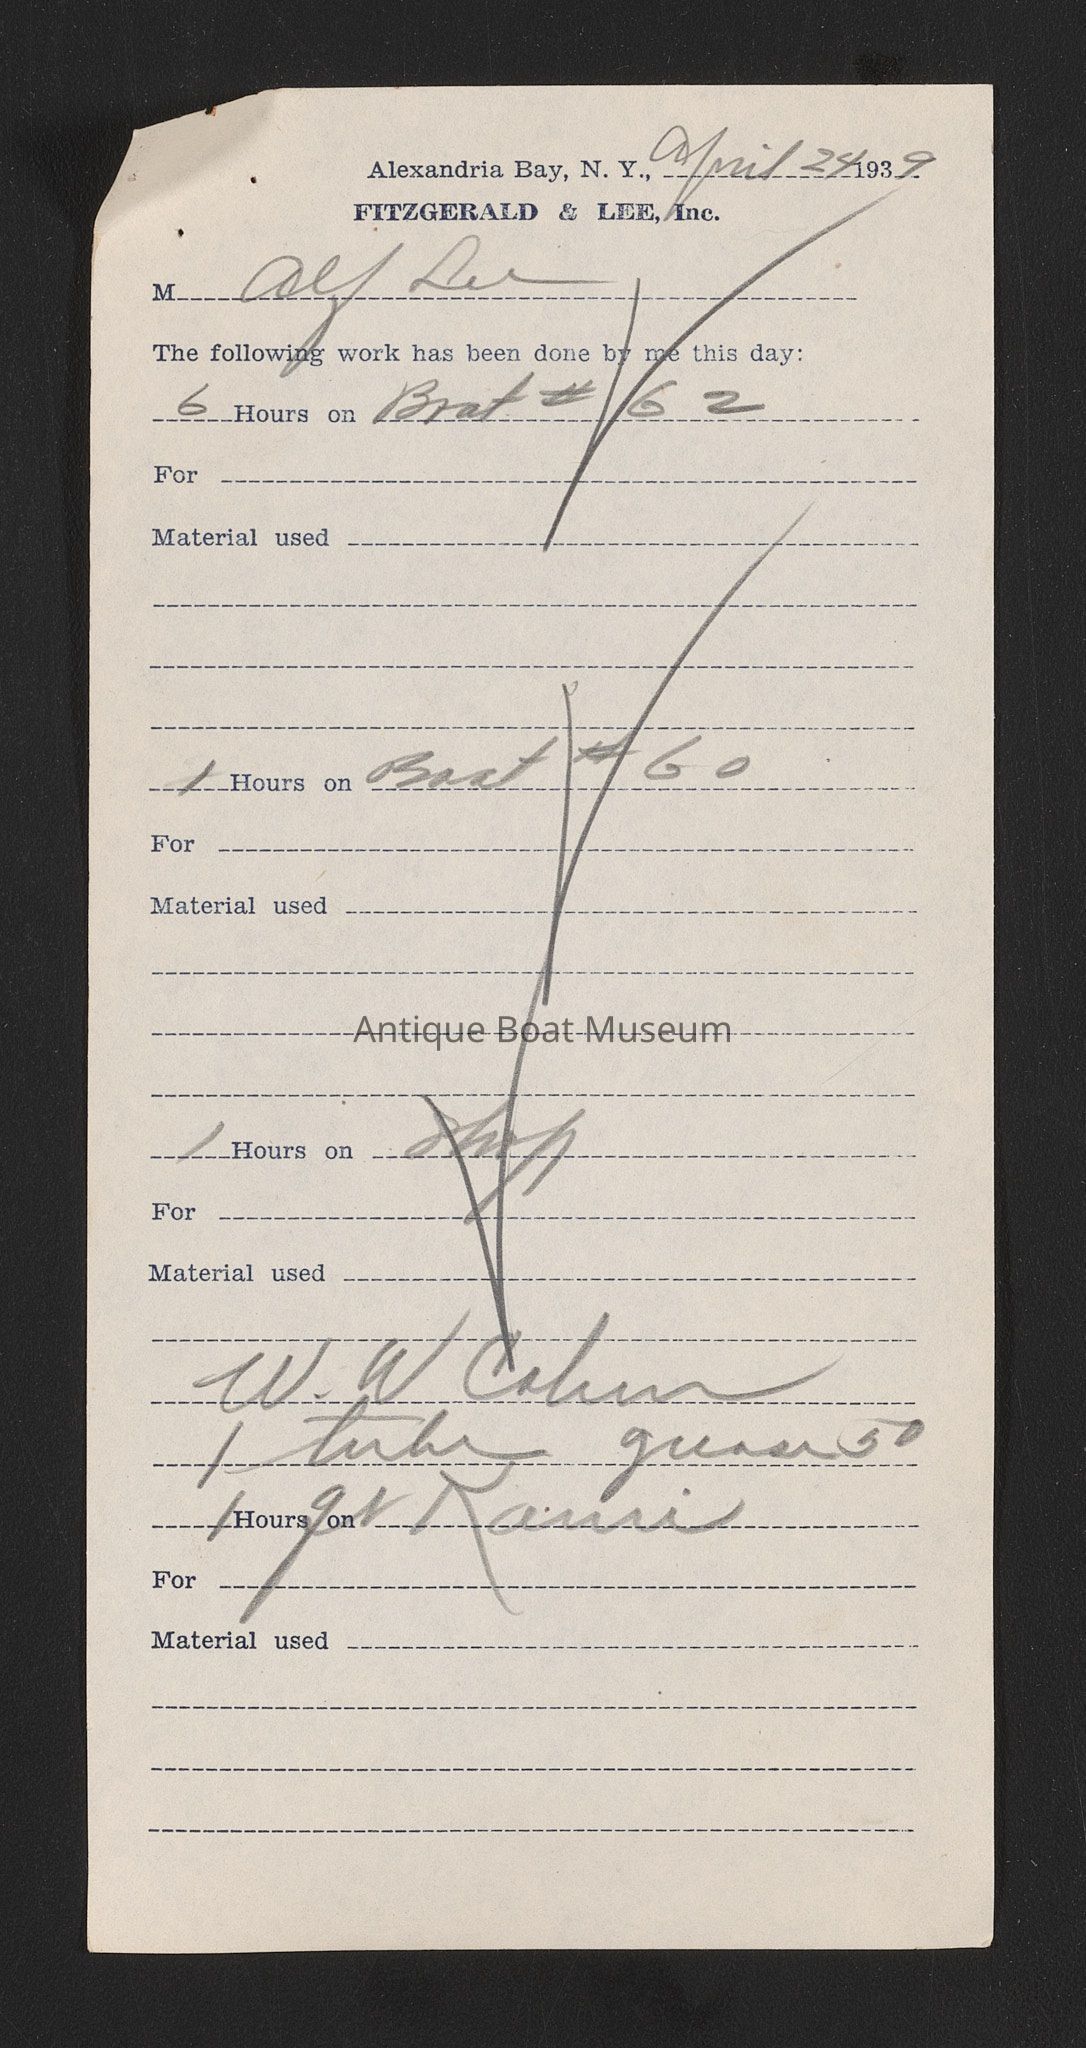 Alexandria Bay, N. Y., April 24 1939
FITZGERALD & LEE, Inc.
M Alf Lee
The following work has been done by me this day:
6 Hours on Boat # 62
For
Material used
1 Hours on Boat # 60
For
Material used
Antique Boat Museum
1 Hours on Shop
For
Material used
W. W
1 tube grease 50
1 Hours on qt
For
Material used